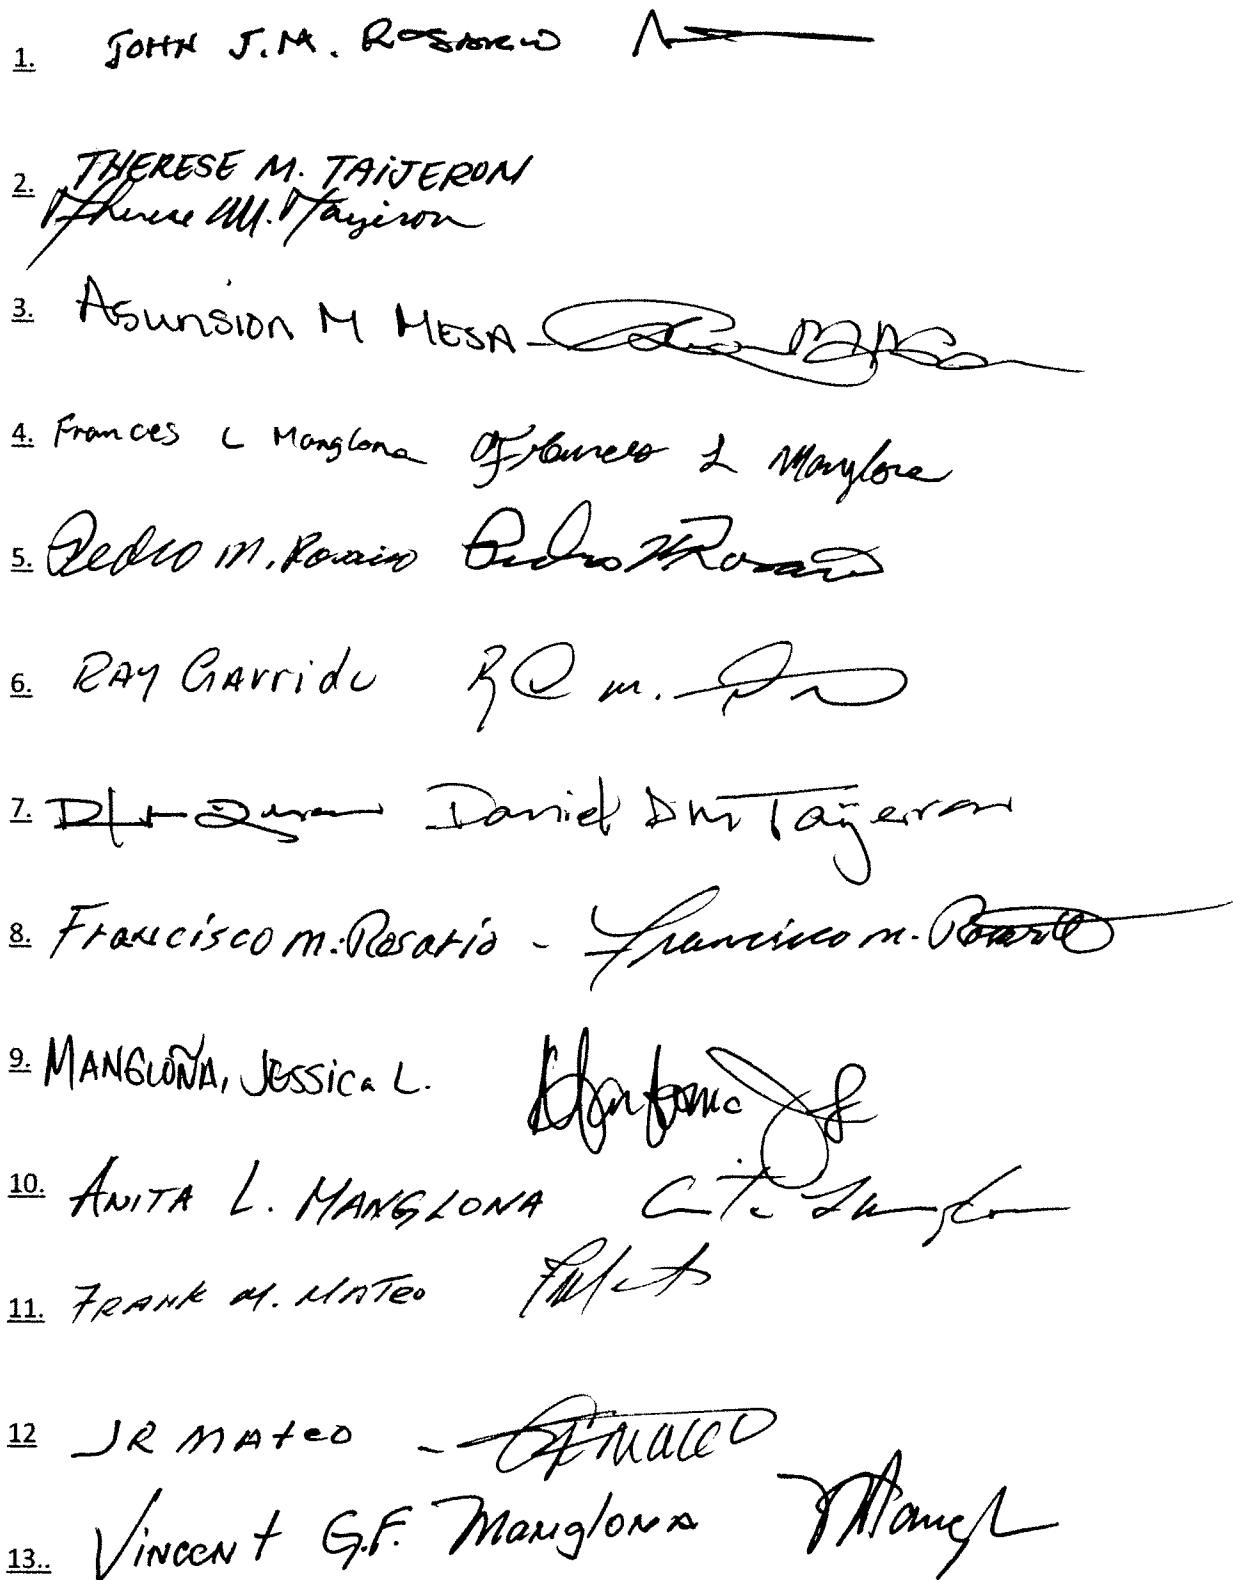 1. JOHN J.M. ROSARIO
2. THERESE M. TAIJERON
Therese M. Taijeron
3. ASUNSION M MESA
4. Frances L Manglona Frances L Manglona
5. Pedro M. Rosario Pedro M Rosario
6. RAY GArrido
7. Daniel DM Taijeron
8. Francisco M. Rosario - Francisco M. Rosario
9. MANGLOÑA, JESSICa L.
10. ANITA L. MANGLONA
11. FRANK M. MATEO
12 JR MATEO -
13.. VINCENT G.F. Manglona